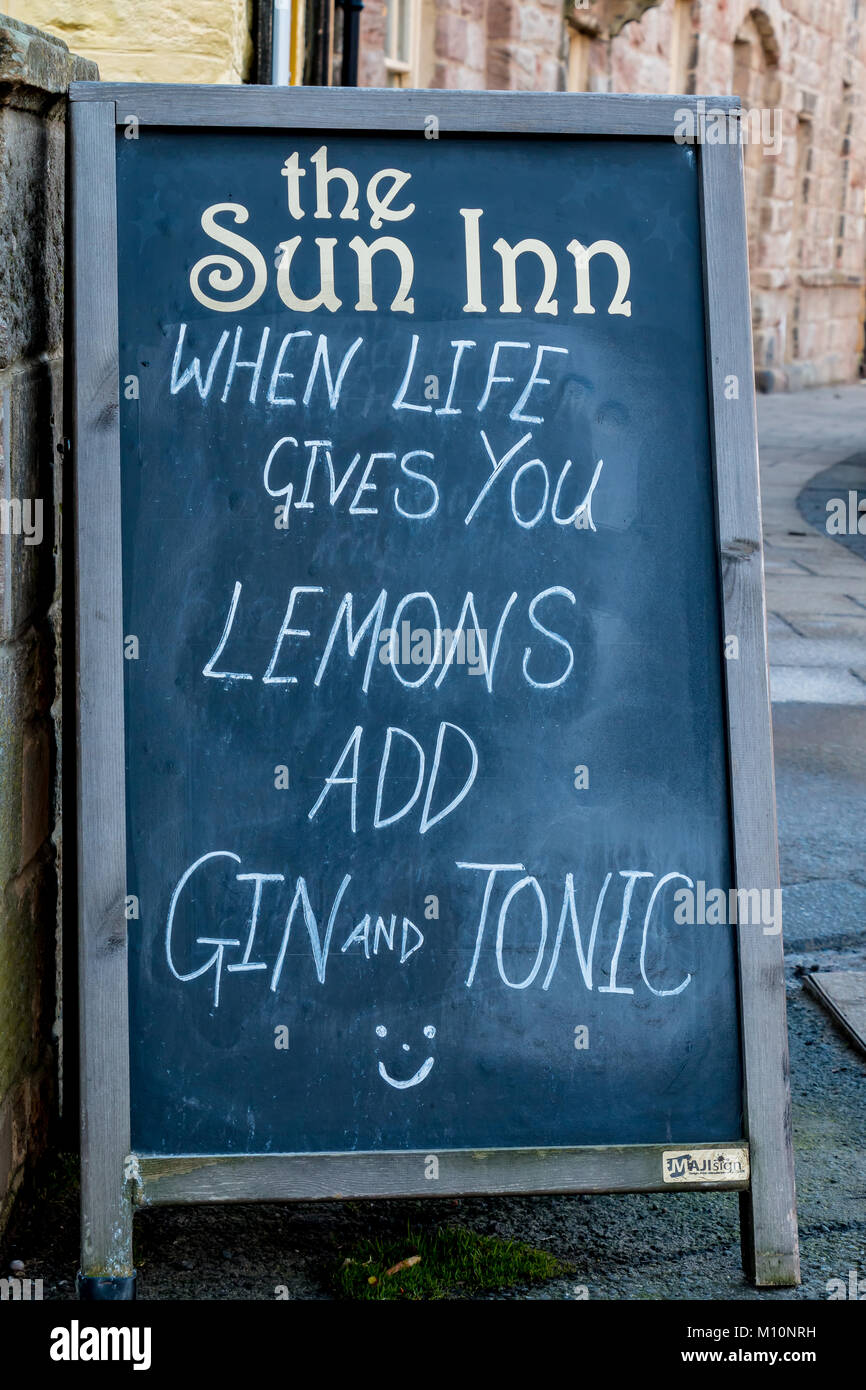 the
Sun Inn
WHEN LIFE
GIVES YOU
LEMONS
ADD
GIN AND TONIC
MAJIsign
alamy
Image ID: M10NRH
www.alamy.com